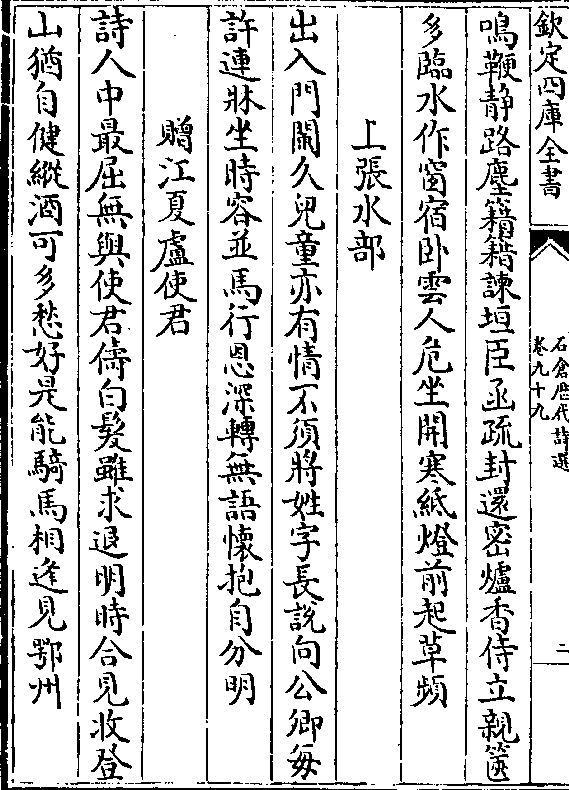 欽定四庫全書
石倉歷代詩選
卷九十九
二
鳴鞭静路塵籍籍諫垣臣函疏封還密爐香侍立親篋
多臨水作窗宿卧雲人危坐開寒紙燈前起草頻
上張水部
出入門闌久兒童亦有情不須將姓字長說向公卿每
許連牀坐時容並馬行恩深轉無語懷抱自分明
贈江夏盧使君
詩人中最屈無與使君儔白髮雖求退明時合見收登
山猶自健縱酒可多愁好是能騎馬相逢見鄂州